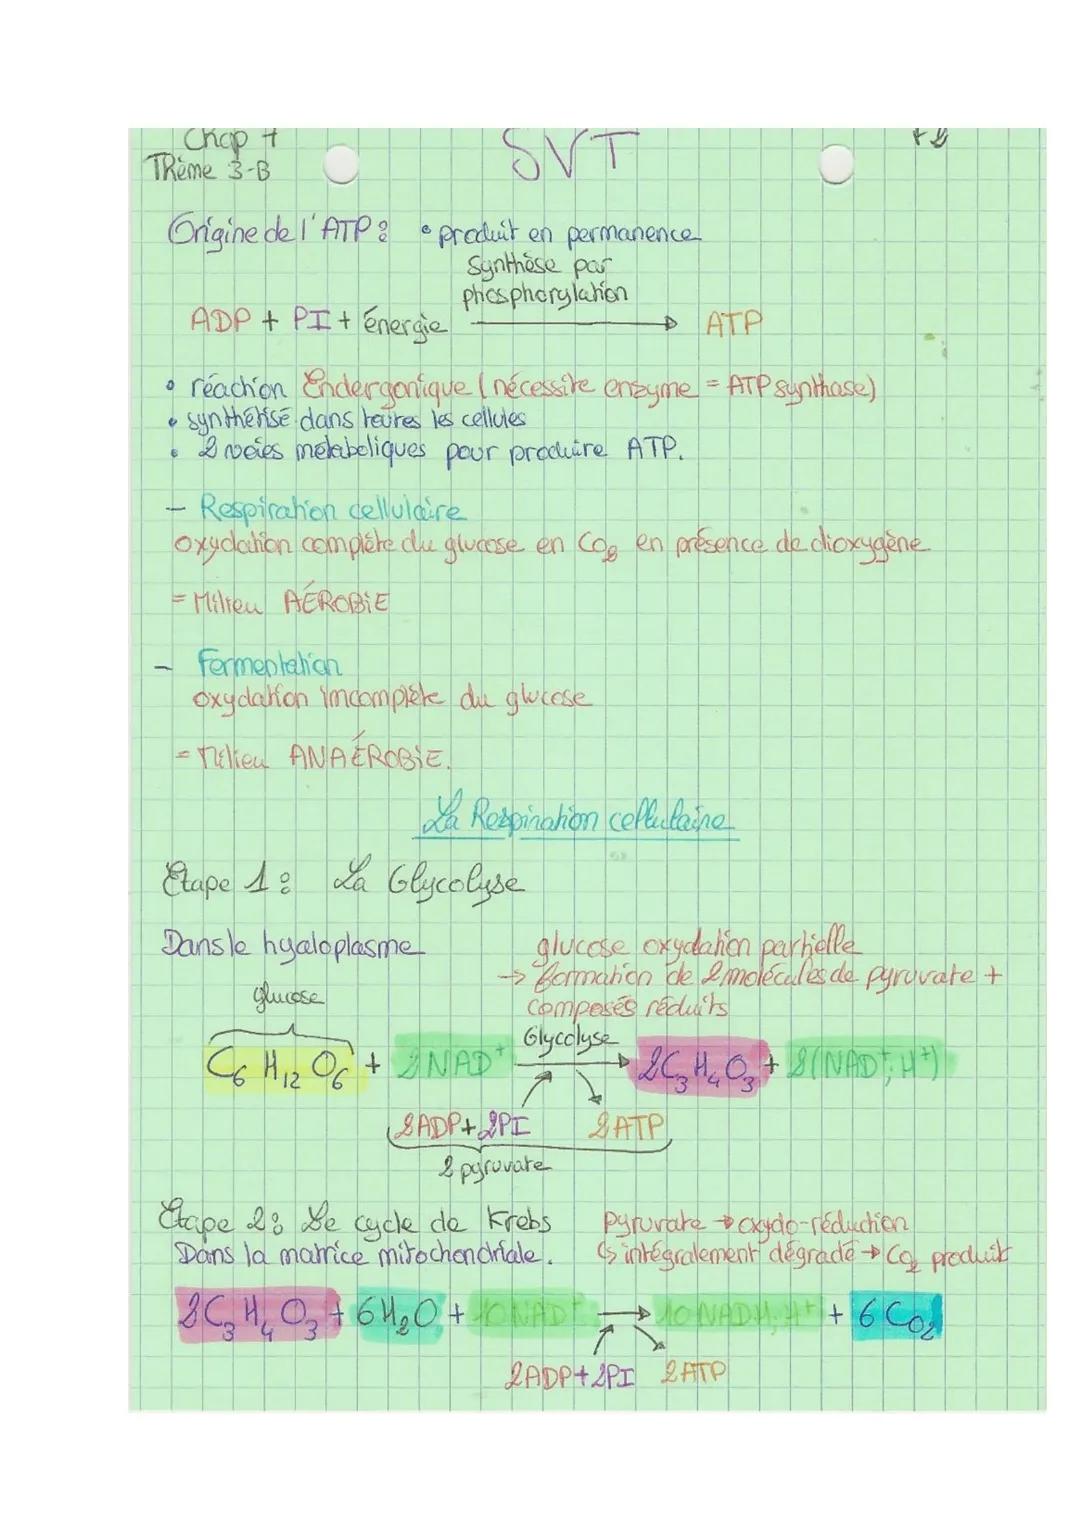 Chap 7
SVT
Thème 3-B
Origine de l'ATP : • produit en permanence
Synthèse par
phosphorylation
ADP + PI + énergie → ATP
• réaction Endergonique (nécessite enzyme = ATP synthase)
• synthétisé dans toutes les cellules
• 2 voies métaboliques pour produire ATP.
– Respiration cellulaire
oxydation complète du glucose en CO₂ en présence de dioxygène
= Milieu AÉROBIE
– Fermentation
oxydation imcomplète du glucose
= Milieu ANAÉROBIE.
La Respiration cellulaire
Étape 1 : La Glycolyse
Dans le hyaloplasme
glucose oxydation partielle
→ formation de 2 molécules de pyruvate +
composés réduits
glucose
Glycolyse
C₆ H₁₂ O₆ + 2NAD⁺ → 2C₃H₄O₃ + 2(NAD⁺, H⁺)
2ADP+2PI 2ATP
2 pyruvate
Étape 2 : Le cycle de Krebs
Pyruvate → oxydo-réduction
Dans la matrice mitochondriale.
↳ intégralement dégradé → CO₂ produit
2C₃H₄O₃ + 6H₂O + 10NAD⁺ → 10NADH, H⁺ + 6 CO₂
2ADP+2PI 2ATP